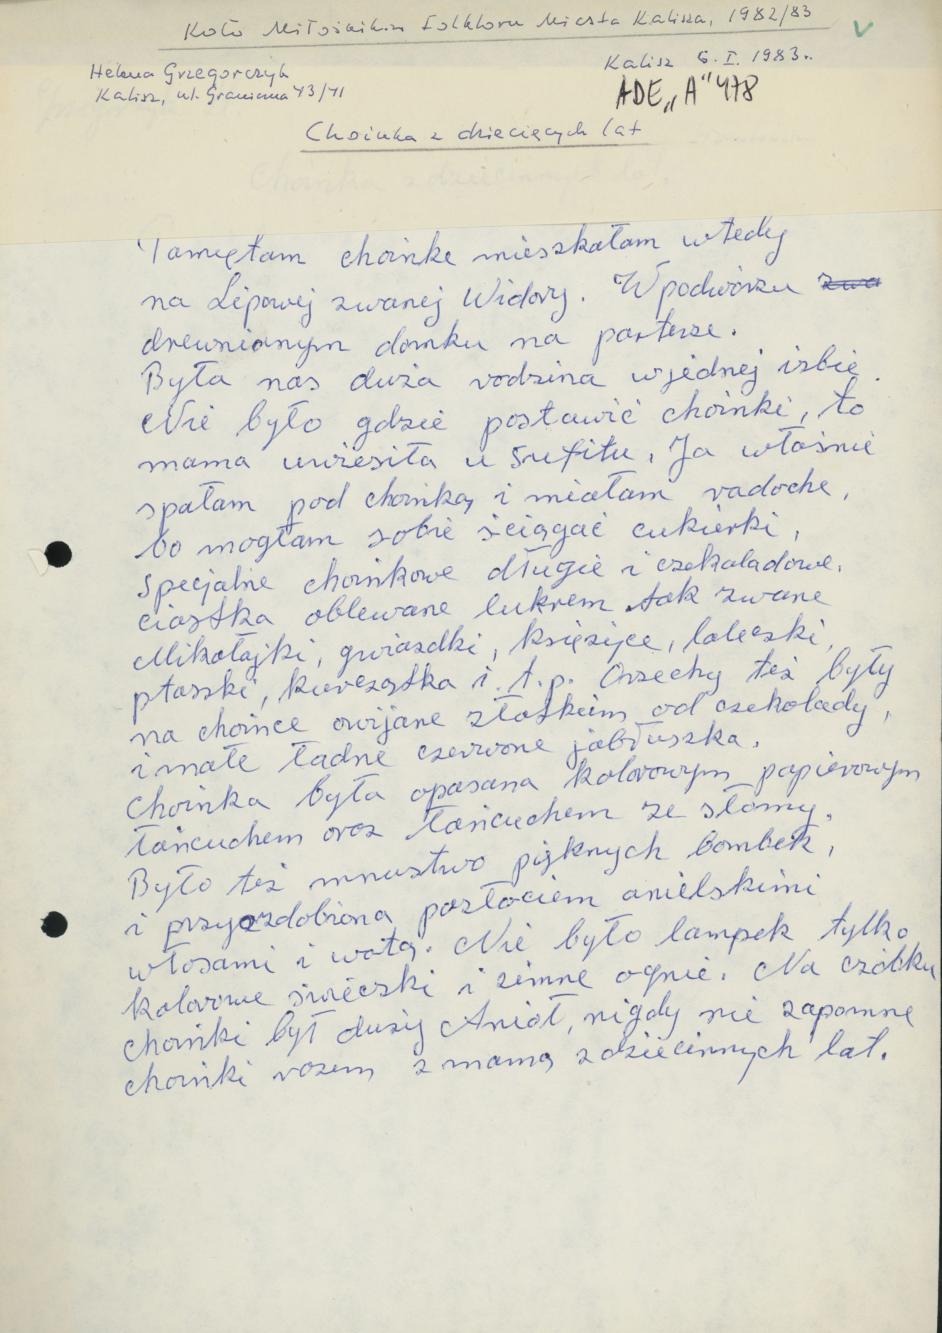 Koło Miłośników Folkloru Miasta Kalisza, 1982/83
Helena Grzegorczyk
Kalisz 6. I. 1983 r.
Kalisz, ul. Graniczna 43/41
ADE „A" 478
Choinka z dziecięcych lat
Choinka z dziecinnych lat.
Pamiętam choinkę mieszkałam wtedy
na Lipowej zwanej Widory. W podwórzu zwa
drewnianym domku na parterze.
Była nas duża rodzina w jednej izbie.
Nie było gdzie postawić choinki, to
mama uwiesiła u sufitu. Ja właśnie
spałam pod choinką i miałam radoche,
bo mogłam sobie ściągać cukierki,
specjalne choinkowe długie i czekoladowe.
ciastka oblewane lukrem tak zwane
Mikołajki, gwiazdki, księżyce, laleczki,
ptaszki, kurczątka i. t. p. Orzechy też były
na choince owijane złotkiem od czekolady,
i małe ładne czerwone jabłuszka.
Choinka była opasana kolorowym papierowym
łańcuchem oraz łańcuchem ze słomy.
Było też mnustwo pięknych bombek,
i przyozdobiona pozłociem anielskimi
włosami i watą. Nie było lampek tylko
kolorowe świeczki i zimne ognie. Na czóbku
choinki był duży Anioł, nigdy nie zapomnę
choinki razem z mamą z dziecinnych lat.